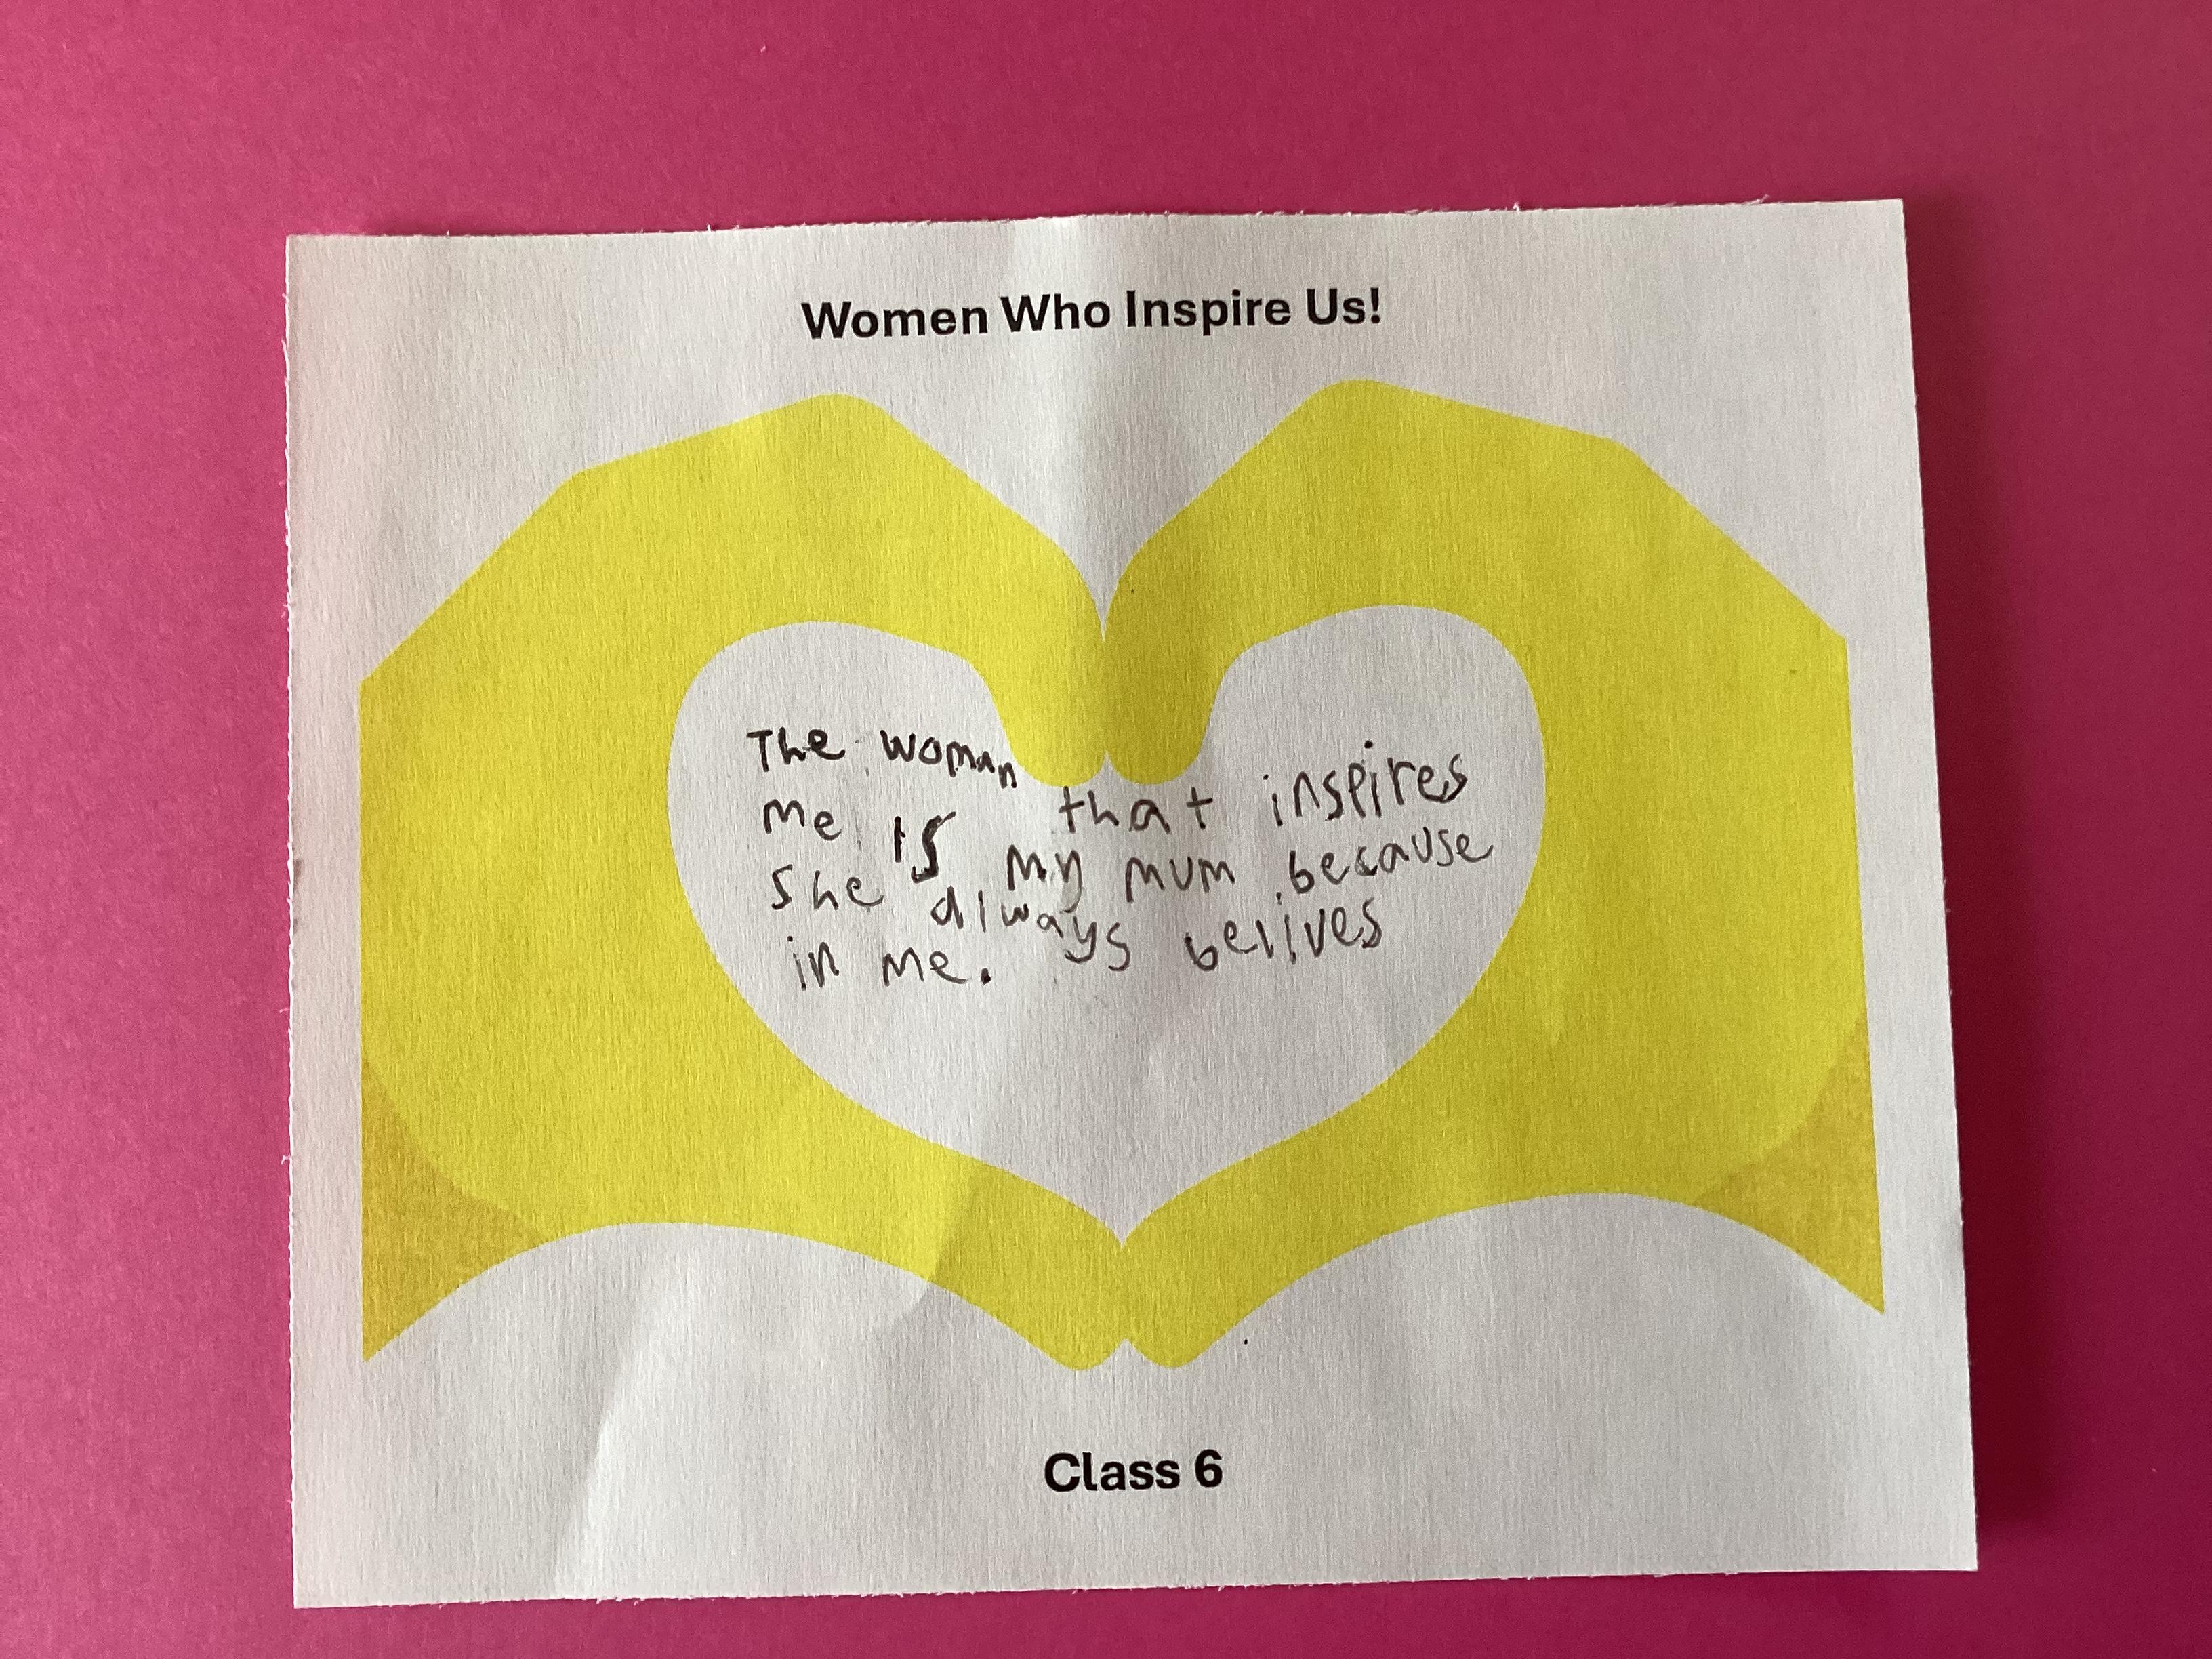 Women Who Inspire Us!
The woman that inspires
me is my mum because
she always belives
in me.
Class 6